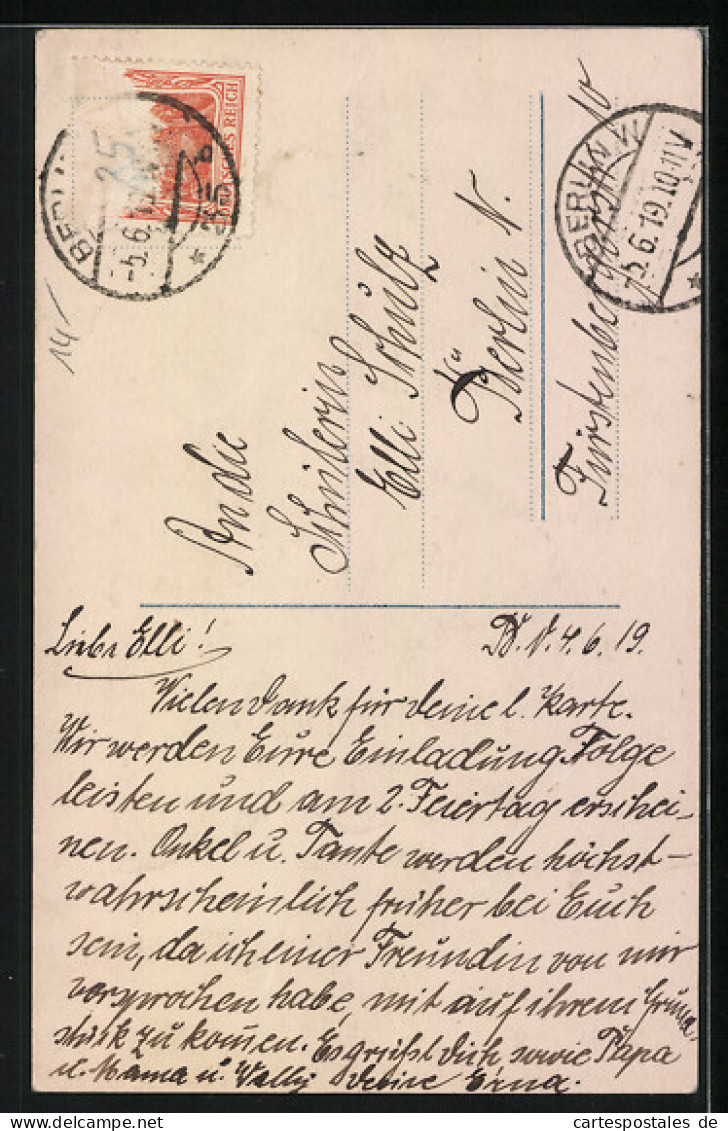 DEUTSCHES REICH
25
BERLIN W
-5.6.19. 10-11V
*
14/-
An die
Schülerin
Elli Schulz
Berlin N.
10
Liebe Elli!
4.6.19.
Vielen Dank für Deine l. Karte.
Wir werden Eure Einladung Folge
leisten und am 2. Feiertag erschei-
nen. Onkel u. Tante werden höchst-
wahrscheinlich früher bei Euch
sein, da ich einer Freundin von mir
versprochen habe, mit auf ihrem Grund-
stück zu komen. Es grüßt Dich sowie Papa
u. Mama u. Wally Deine Erna.
cartespostales.de